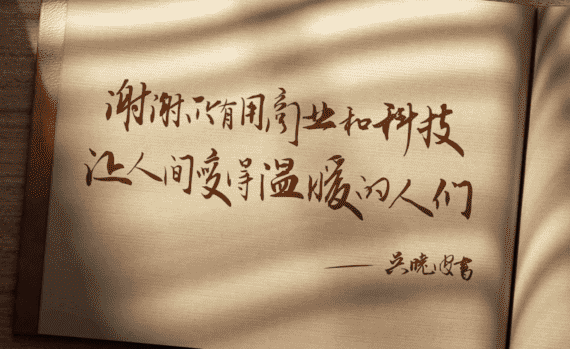 谢谢所有用商业和科技
让人间变得温暖的人们
——吴晓波书